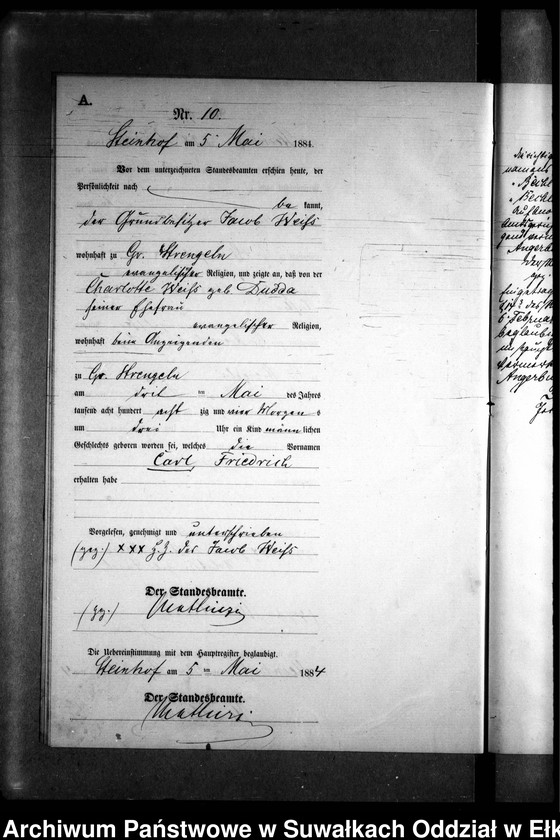 A.
Nr. 10.
Steinhof am 5 Mai 1884.
Vor dem unterzeichneten Standesbeamten erschien heute, der
Persönlichkeit nach
be kannt,
der Grundbesitzer Jacob Weiss
wohnhaft zu Gr. Strengeln
evangelischer Religion, und zeigte an, daß von der
Charlotte Weiss geb Dudda
seiner Ehefrau
evangelischer Religion,
wohnhaft beim Anzeigenden
zu Gr. Strengeln
am drit ten Mai des Jahres
tausend acht hundert acht zig und vier Morgens
um drei Uhr ein Kind männ lichen
Geschlechts geboren worden sei, welches die Vornamen
Carl, Friedrich
erhalten habe
Vorgelesen, genehmigt und unterschrieben
(gez.) XXX H.Z. des Jacob Weiss
Der Standesbeamte.
(gz.)
Die Uebereinstimmung mit dem Hauptregister beglaubigt.
Steinhof am 5 ten Mai 1884
Der Standesbeamte.
Angerburg
Archiwum Państwowe w Suwałkach Oddział w Ełk